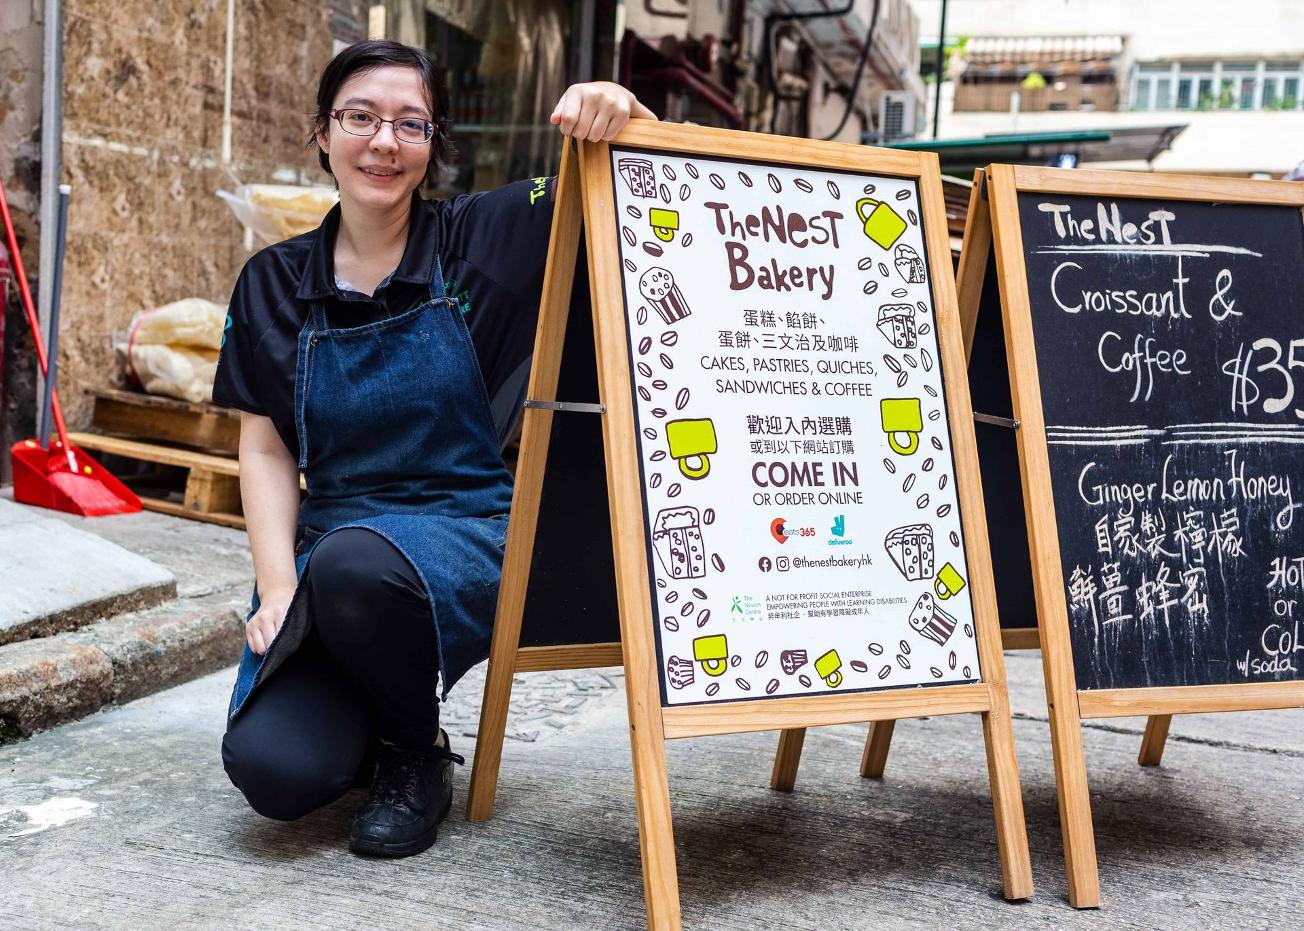 The NEST
Bakery
蛋糕、餡餅、
蛋餅、三文治及咖啡
CAKES, PASTRIES, QUICHES,
SANDWICHES & COFFEE
歡迎入內選購
或到以下網站訂購
COME IN
OR ORDER ONLINE
eats365
deliveroo
@thenestbakeryhk
The
Nesbitt
Centre
A NOT FOR PROFIT SOCIAL ENTERPRISE
EMPOWERING PEOPLE WITH LEARNING DISABILITIES
非牟利社企，幫助有學習障礙成年人
The NEST
Croissant &
Coffee $35
Ginger Lemon Honey
自家製檸檬
鮮薑蜂蜜
HOT
or
COL
w/soda